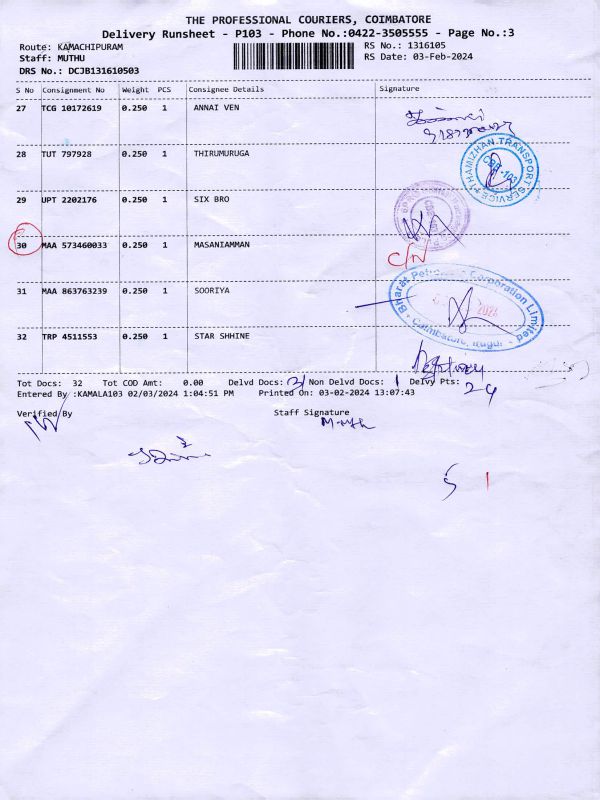 THE PROFESSIONAL COURIERS, COIMBATORE
Delivery Runsheet - P103 - Phone No.:0422-3505555 - Page No.:3
Route: KAMACHIPURAM RS No.: 1316105
Staff: MUTHU RS Date: 03-Feb-2024
DRS No.: DCJB131610503
S No Consignment No Weight PCS Consignee Details Signature
27 TCG 10172619 0.250 1 ANNAI VEN
28 TUT 797928 0.250 1 THIRUMURUGA
THAMIZHAN TRANSPORT SERVICE
CBE-103
29 UPT 2202176 0.250 1 SIX BRO
30 MAA 573460033 0.250 1 MASANIAMMAN
C/N
31 MAA 863763239 0.250 1 SOORIYA
Bharat Petroleum Corporation Limited
Coimbatore, Irugur
32 TRP 4511553 0.250 1 STAR SHHINE
Tot Docs: 32 Tot COD Amt: 0.00 Delvd Docs: 31 Non Delvd Docs: 1 Delvy Pts: 24
Entered By :KAMALA103 02/03/2024 1:04:51 PM Printed On: 03-02-2024 13:07:43
Verified By Staff Signature
Muthu
5 1